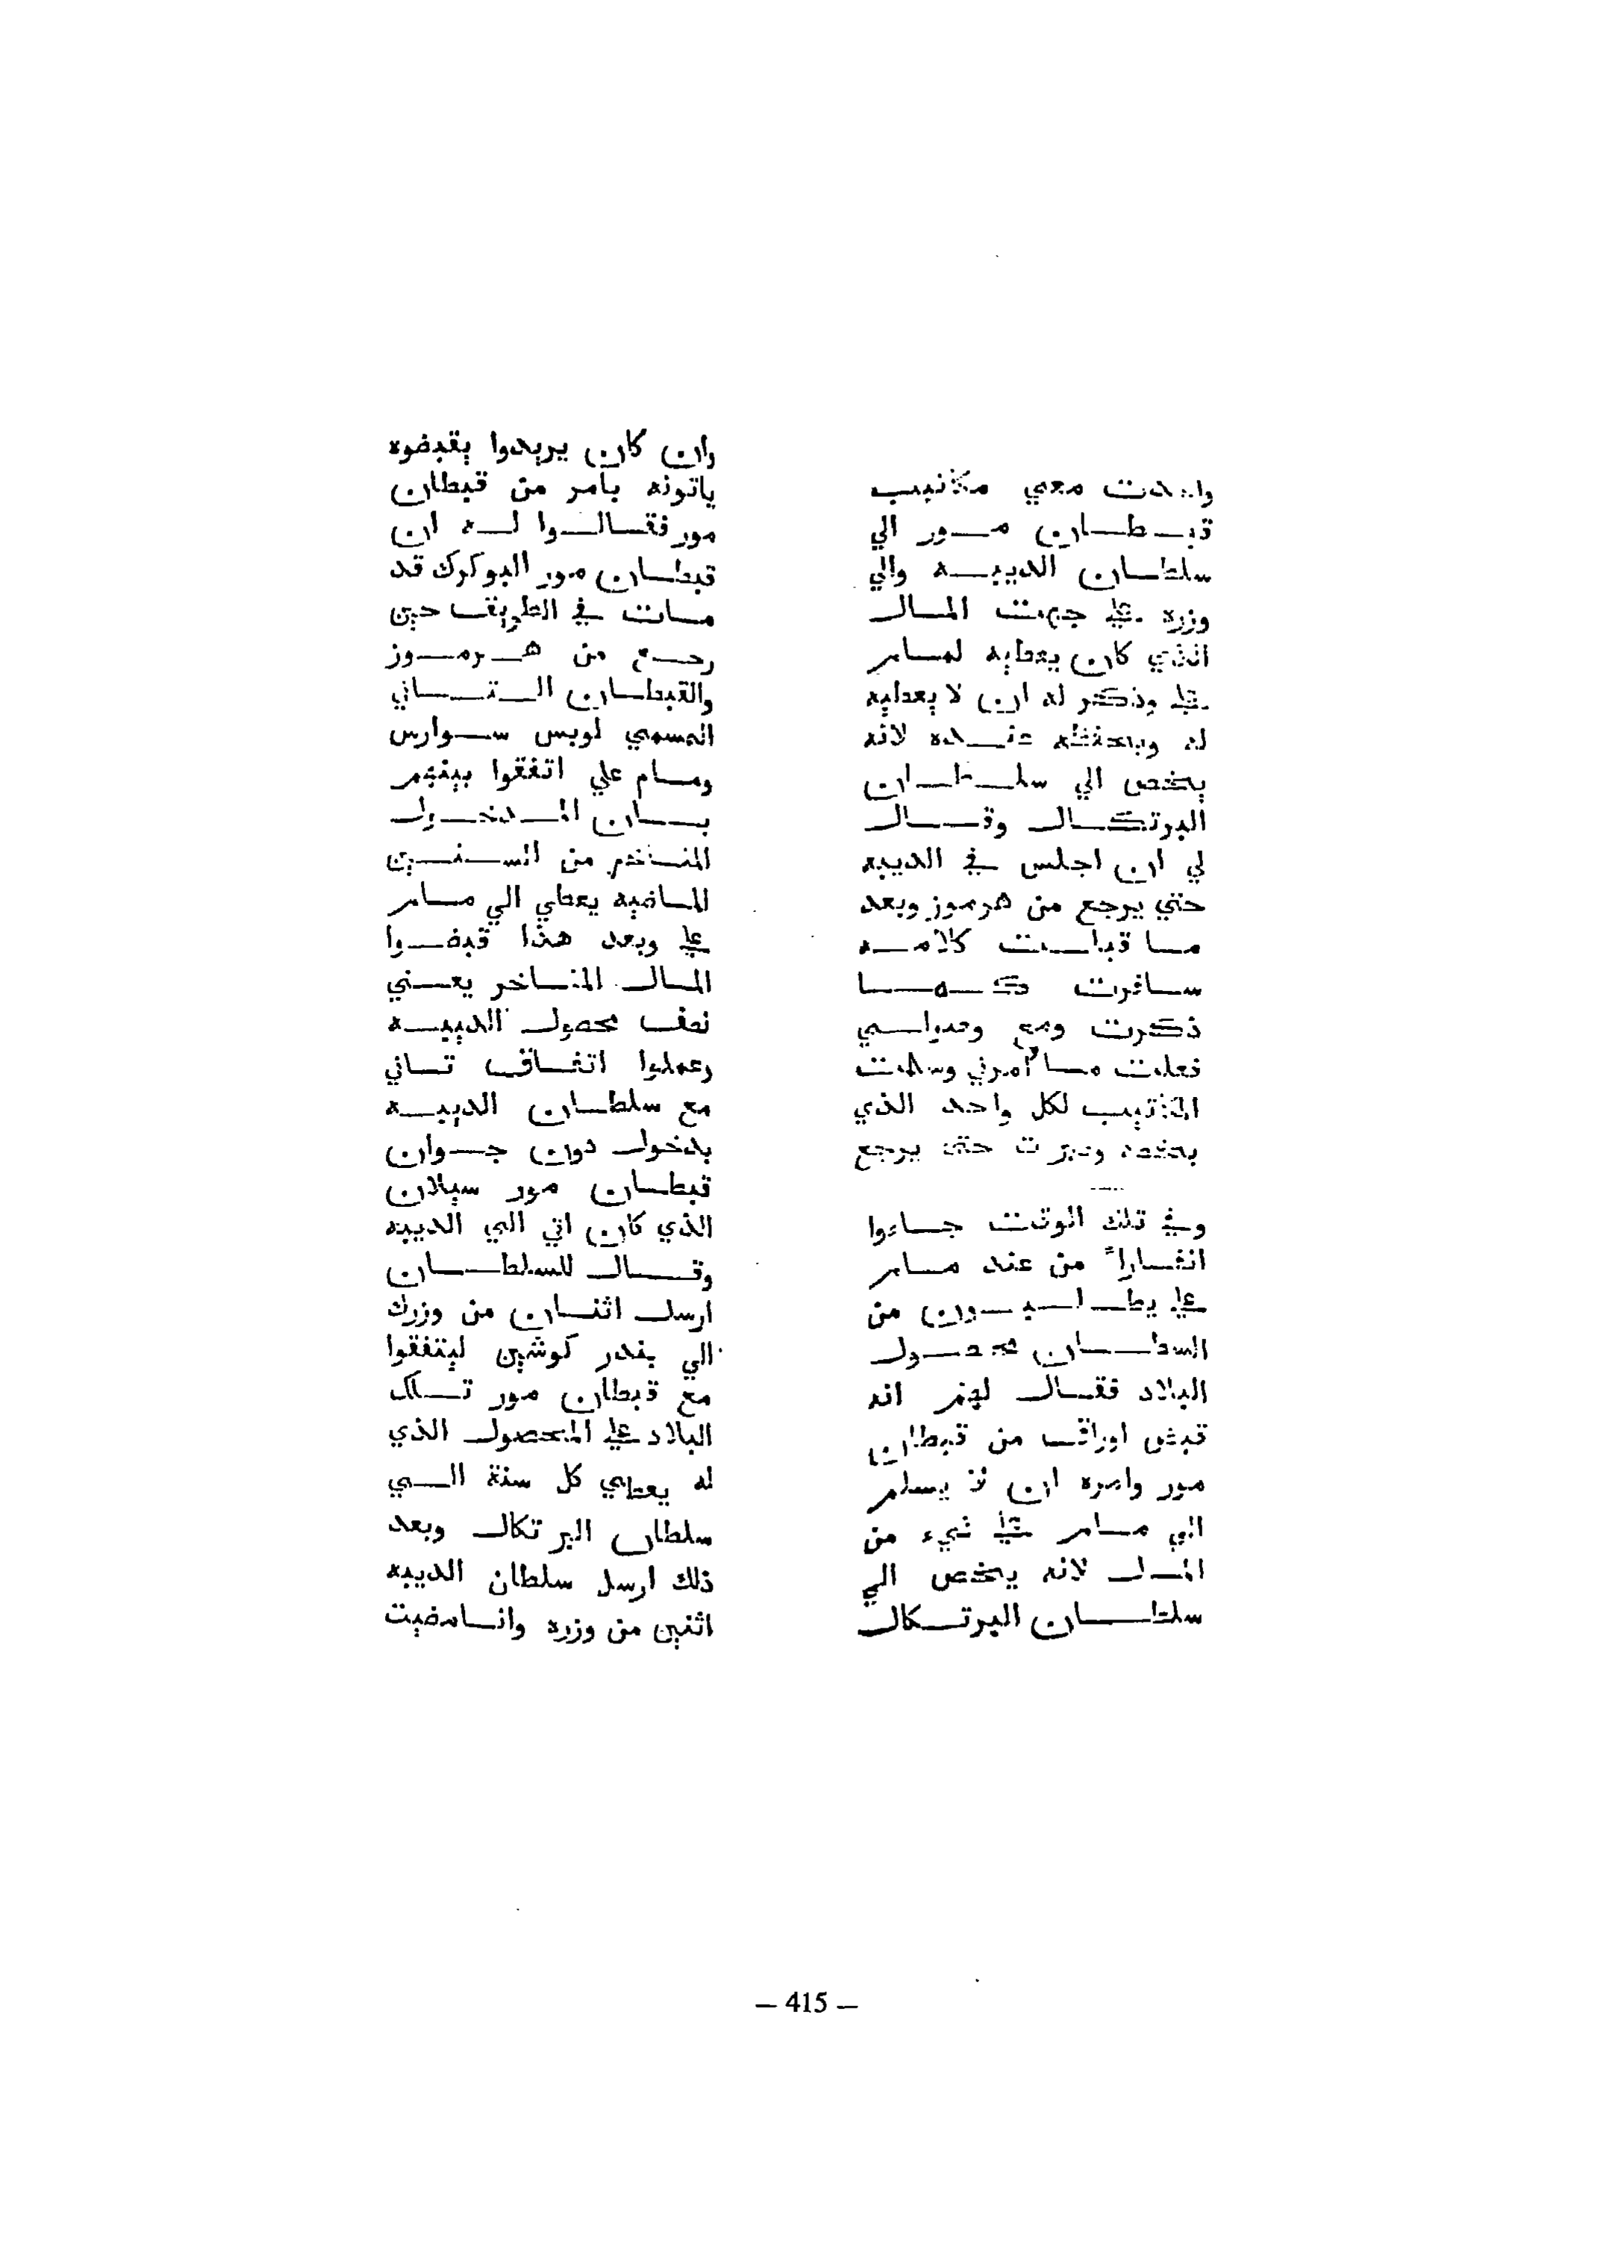 معي مكاتيب
قبطان مور الي
سلطان الديبه والي
وزره علي جهت المال
الذي كان يعطيه لمامر
علي وذكر له ان لا يعطيه
له ويحفظه عنده لانه
يخص الي سلطان
البرتكال وقال
لي ان اجلس في الديبه
حتي يرجع من هرموز وبعد
ما قبلت كلامه
سافرت كما
ذكرت ومع وصولي
فعلت ما امرني وسلمت
المكاتيب لكل واحد الذي
يخصه وصبرت حتي يرجع
وفي تلك الوقت جاءوا
انفاراً من عند مامر
علي يطلبون من
السطان محصول
البلاد فقال لهم انه
قبض اوراق من قبطان
مور وامره ان لا يسلم
الي مامر علي شيء من
المال لانه يخص الي
سلطان البرتكال
وان كان يريدوا يقبضوه
ياتونه بامر من قبطان
مور فقالوا له ان
قبطان مور البوكرك قد
مات في الطريق حين
رجع من هرموز
والقبطان التاني
المسمي لويس سوارس
ومام علي اتفقوا بينهم
بان المدخول
المتاخر من السنين
الماضيه يعطي الي مامر
علي وبعد هذا قبضوا
المال المتاخر يعني
نصف محصول الديبه
وعملوا اتفاق تاني
مع سلطان الديبه
بدخول دون جوان
قبطان مور سيلان
الذي كان اتي الي الديبه
وقال للسلطان
ارسل اثنان من وزرك
الي بندر كوشين ليتفقوا
مع قبطان مور تلك
البلاد علي المحصول الذي
له يعطي كل سنة الي
سلطان البرتكال وبعد
ذلك ارسل سلطان الديبه
اثنين من وزره وانا مضيت
— 415 —